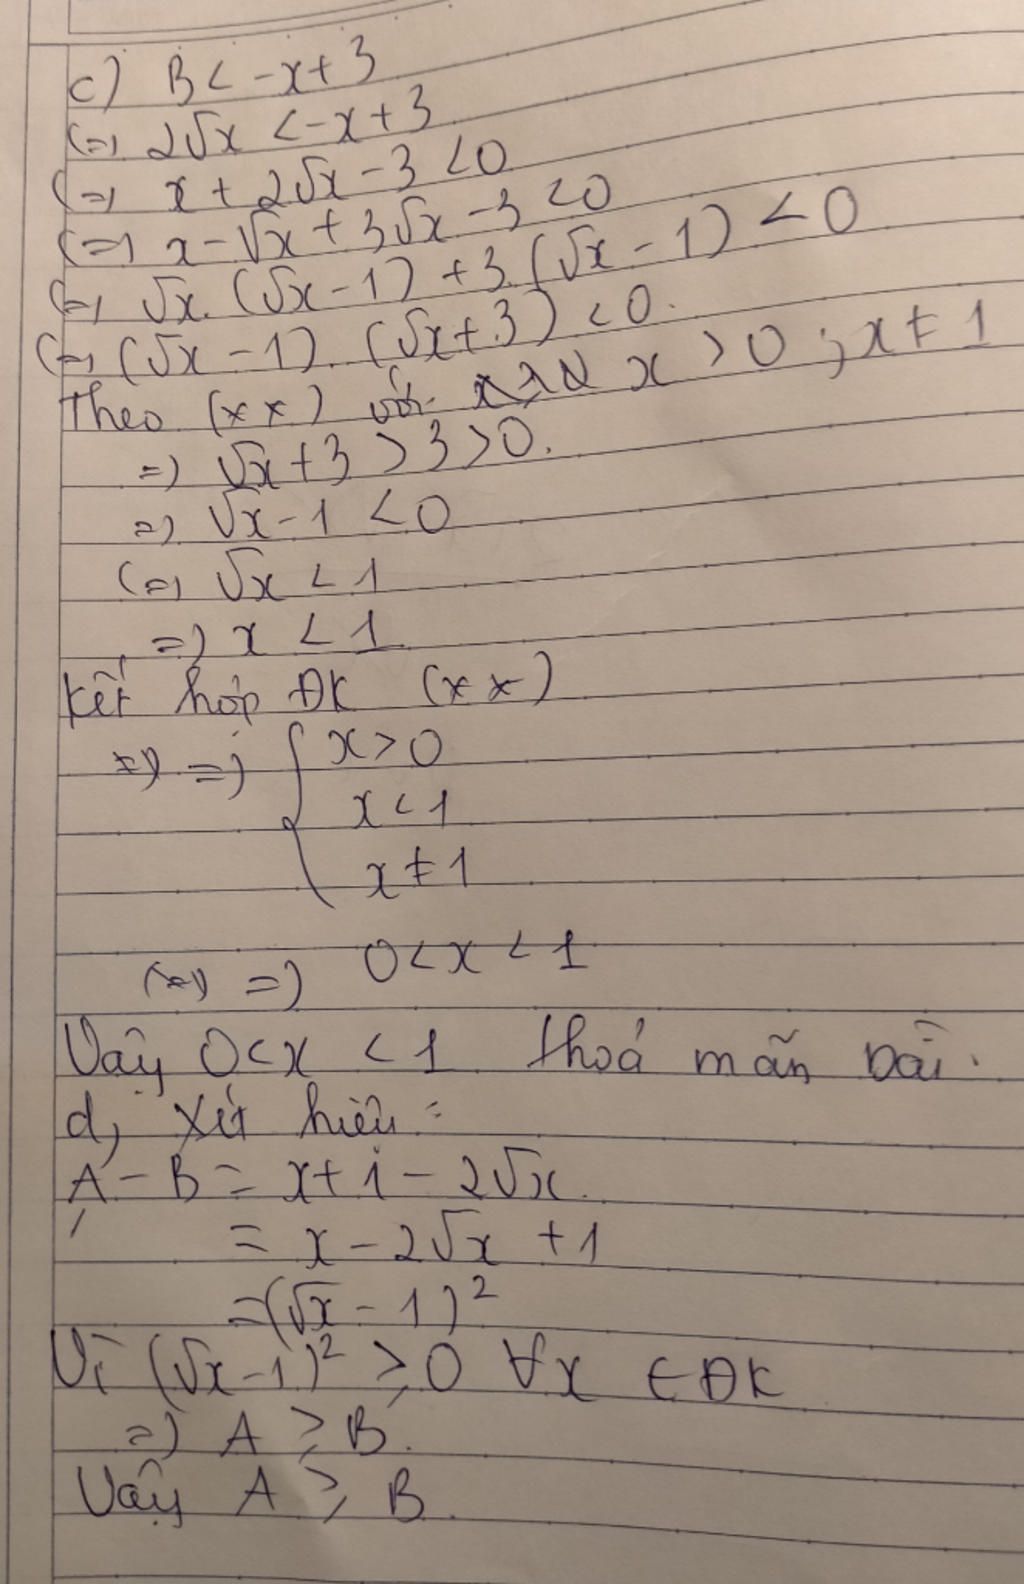 c) B < -x+3
(=) 2√x < -x+3
(=) x + 2√x - 3 < 0
(=) x - √x + 3√x - 3 < 0
(=) √x. (√x - 1) + 3. (√x - 1) < 0
(=) (√x - 1). (√x + 3) < 0.
Theo (**) với x > 0 ; x ≠ 1
=) √x + 3 > 3 > 0.
=) √x - 1 < 0
(=) √x < 1
=) x < 1
Kết hợp ĐK (**)
=) { x > 0
x < 1
x ≠ 1
=) 0 < x < 1
Vậy 0 < x < 1 thoả mãn bài.
d, Xét hiệu:
A - B = x + 1 - 2√x.
= x - 2√x + 1
= (√x - 1)²
Vì (√x - 1)² ≥ 0 ∀x ∈ ĐK
=) A ≥ B.
Vậy A ≥ B.